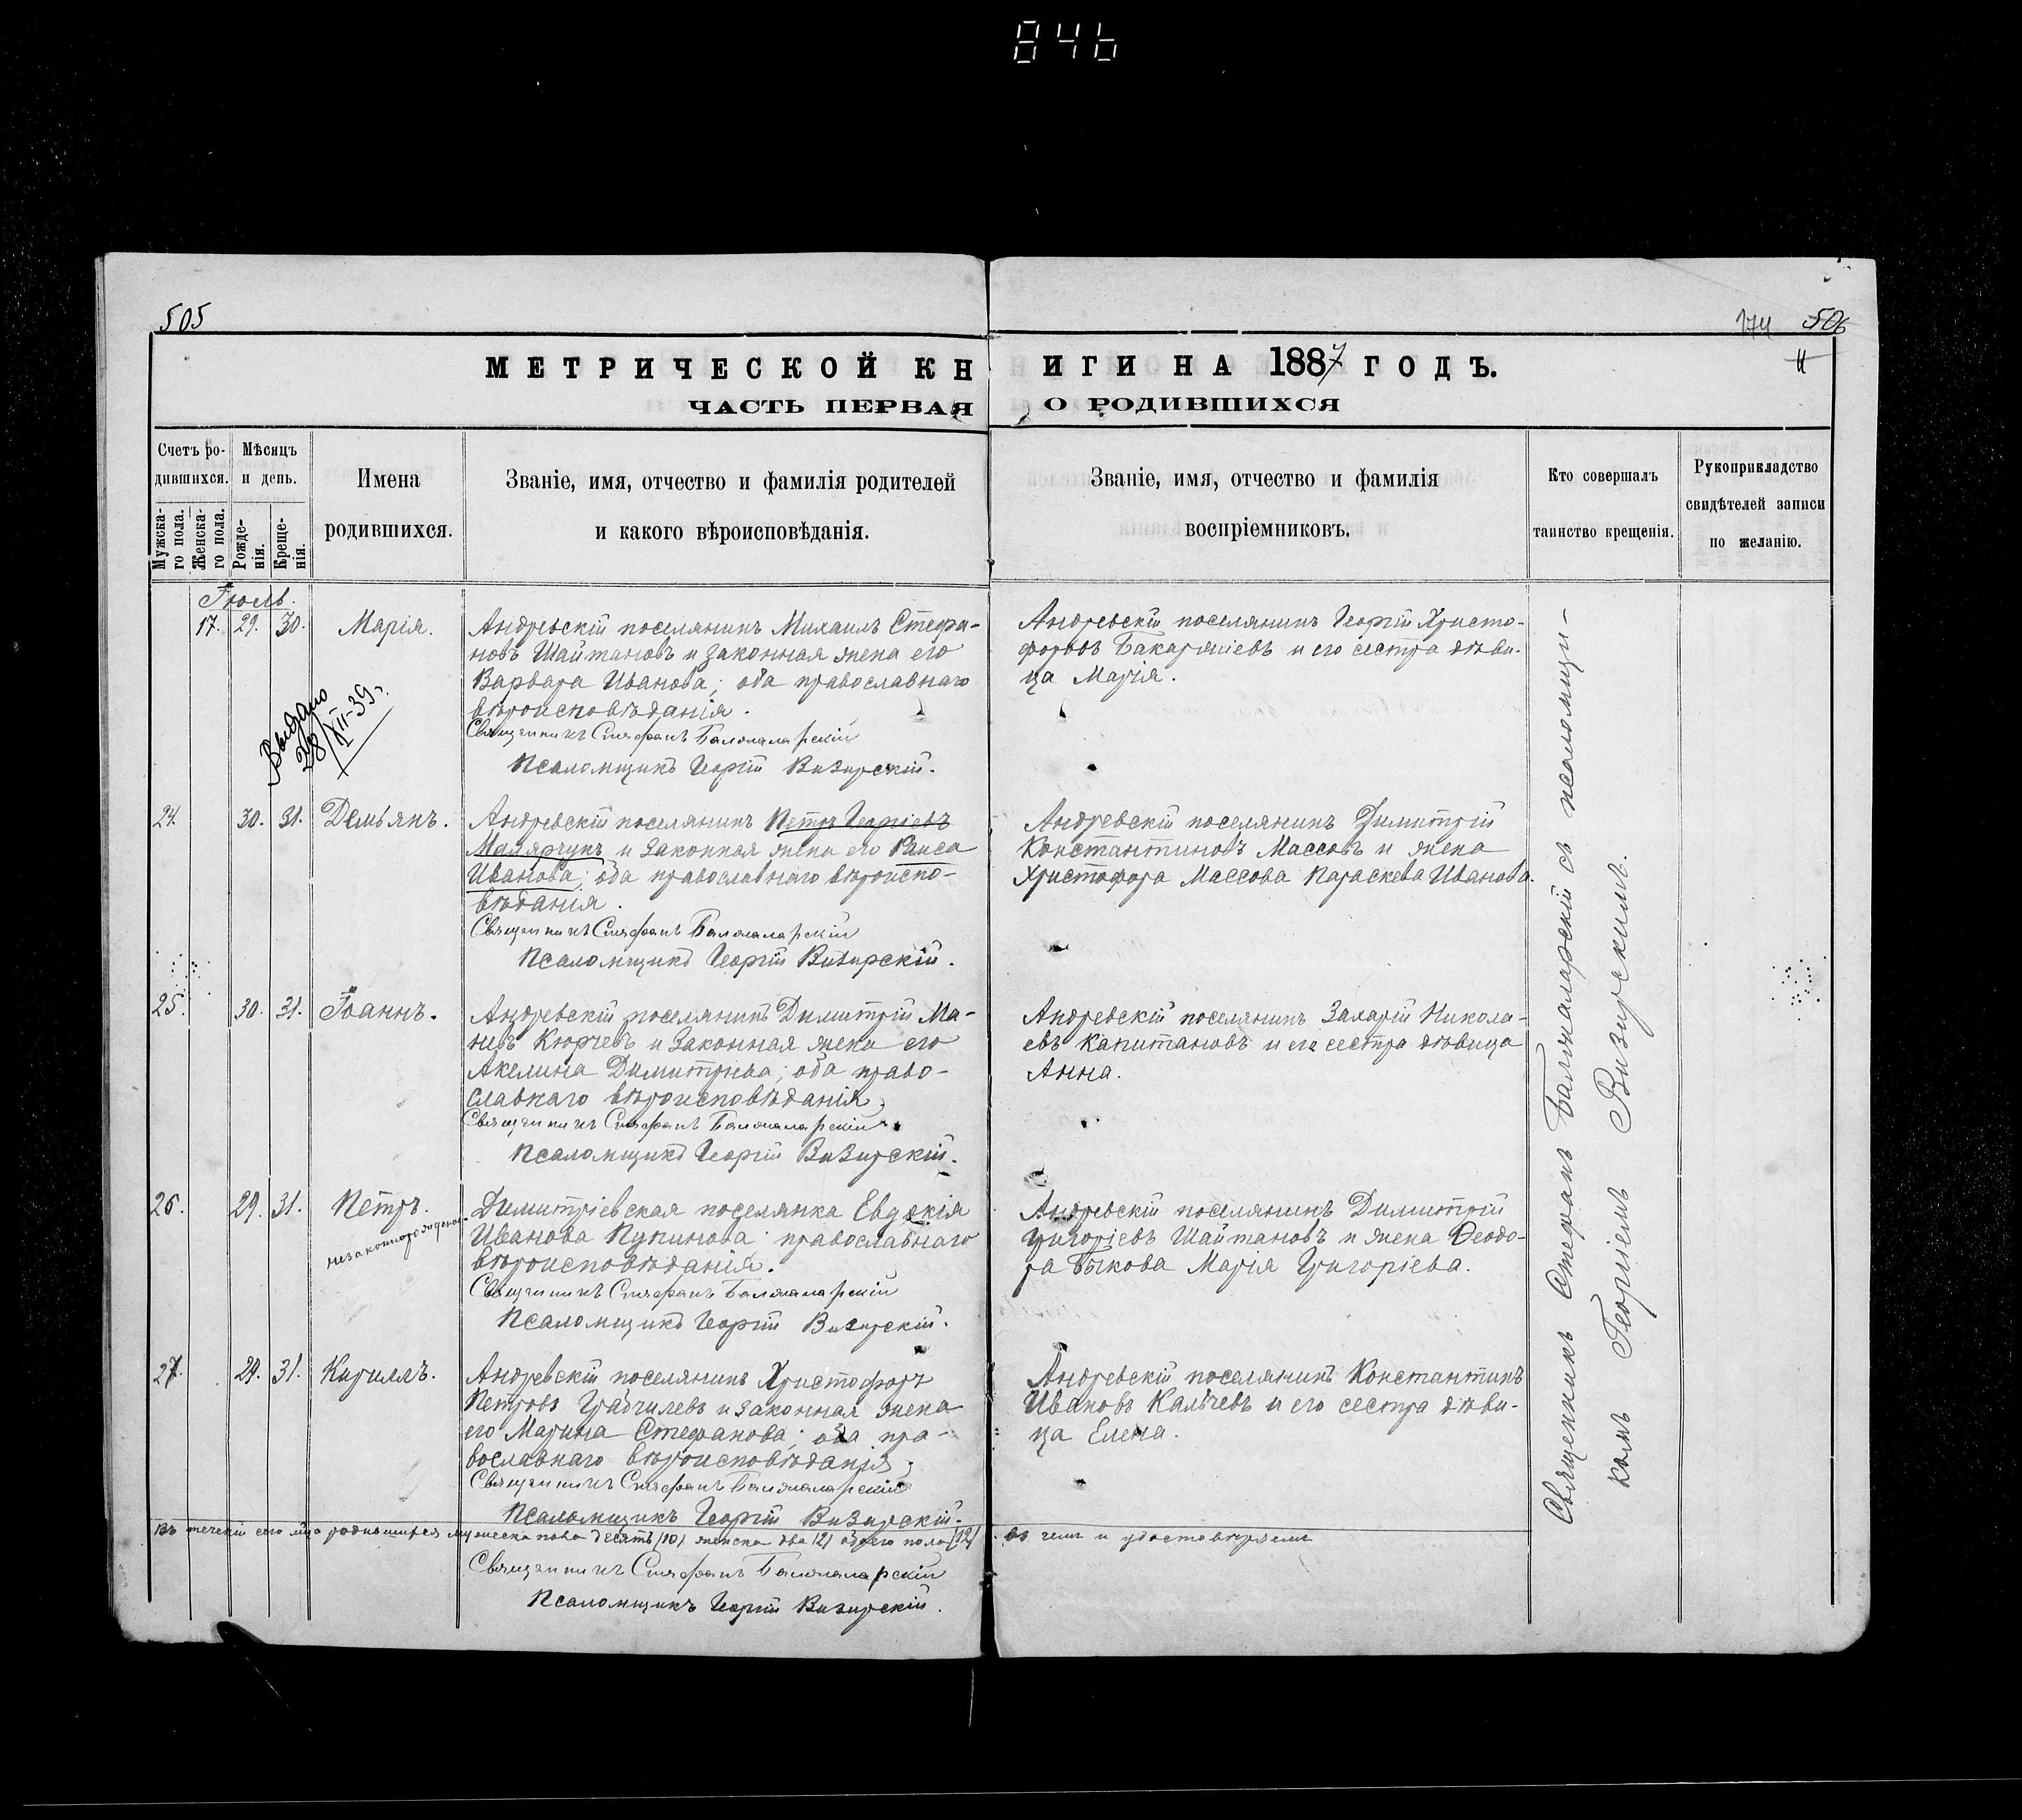 846
505
174 506
МЕТРИЧЕСКОЙ КН ИГИ НА 1887 ГОДЪ.
ЧАСТЬ ПЕРВАЯ, О РОДИВШИХСЯ
Счетъ ро-
дившихся.
Мужска-
го пола.
Женска-
го пола.
Мѣсяцъ
и день.
Рожде-
нія.
Креще-
нія.
Имена
родившихся.
Званіе, имя, отчество и фамилія родителей
и какого вѣроисповѣданія.
Званіе, имя, отчество и фамилія
воспріемниковъ.
Кто совершалъ
таинство крещенія.
Рукоприкладство
свидѣтелей записи
по желанію.
Іюль.
17. 29. 30. Марія.
Андревскій поселянинъ Михаилъ Стефа-
новъ Шайтановъ и законная жена его
Варвара Иванова; оба православнаго
вѣроисповѣданія.
Священникъ Стефанъ
Псаломщикъ Георгій Визирскій.
Андревскій поселянинъ Георгій Христо-
форовъ и его сестра дѣви-
ца Марія.
Выдано
28/XII-39г.
24. 30. 31. Демьянъ.
Андревскій поселянинъ Петръ Георгіевъ
Малярчукъ и законная жена его Раиса
Иванова; оба православнаго вѣроиспо-
вѣданія.
Священникъ Стефанъ
Псаломщикъ Георгій Визирскій.
Андревскій поселянинъ Димитрій
Константиновъ Массовъ и жена
Христофора Массова Параскева Иванова.
25. 30. 31. Іоаннъ.
Андревскій поселянинъ Димитрій Ма-
невъ Кюрчевъ и законная жена его
Акелина Димитріева; оба право-
славнаго вѣроисповѣданія,
Священникъ Стефанъ
Псаломщикъ Георгій Визирскій.
Андревскій поселянинъ Захарій Никола-
евъ Капитановъ и его сестра дѣвица
Анна.
26. 29. 31. Петръ.
незаконнорожден.
Димитріевская поселянка Евдокія
Иванова Пупинова православнаго
вѣроисповѣданія.
Священникъ Стефанъ
Псаломщикъ Георгій Визирскій.
Андревскій поселянинъ Димитрій
Григоріевъ Шайтановъ и жена Ѳеодо-
ра Быкова Марія Григоріева.
27. 29. 31. Кириллъ.
Андревскій поселянинъ Христофоръ
Петровъ Грабчилевъ и законная жена
его Марина Стефанова; оба пра-
вославнаго вѣроисповѣданія,
Священникъ Стефанъ
Псаломщикъ Георгій Визирскій.
Андревскій поселянинъ Константинъ
Ивановъ Калчевъ и его сестра дѣви-
ца Елена.
Въ теченіи сего м-ца родившихся мужеска пола десять (10) женска два (2) обоего пола (12) въ чемъ и удостовѣряемъ
Священникъ Стефанъ
Псаломщикъ Георгій Визирскій.
Священникъ Стефанъ съ псаломщи-
комъ Георгіемъ Визирскимъ.